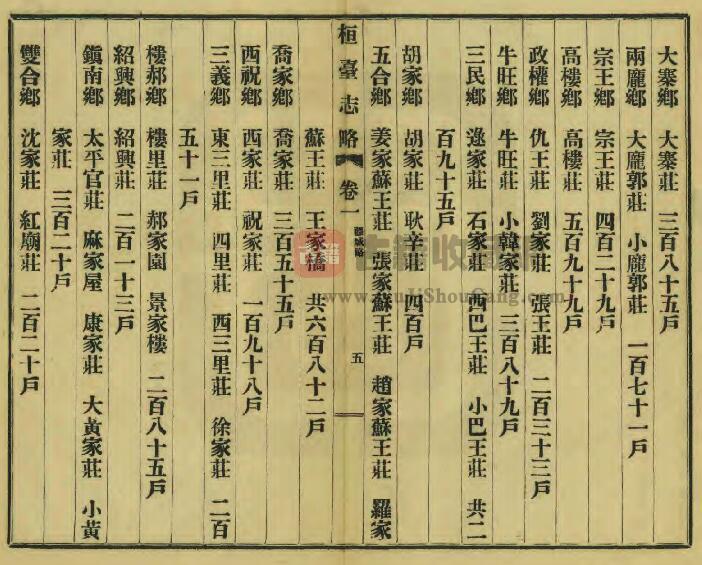 大寨鄉　大寨莊　三百八十五戶
兩龐鄉　大龐郭莊　小龐郭莊　一百七十一戶
宗王鄉　宗王莊　四百二十九戶
高樓鄉　高樓莊　五百九十九戶
政權鄉　仇王莊　劉家莊　張王莊　二百三十三戶
牛旺鄉　牛旺莊　小韓家莊　三百八十九戶
三民鄉　逯家莊　石家莊　西巴王莊　小巴王莊　共二
百九十五戶
胡家鄉　胡家莊　耿辛莊　四百戶
五合鄉　姜家蘇王莊　張家蘇王莊　趙家蘇王莊　羅家
桓臺志略　卷一　疆域略　五
蘇王莊　王家橋　共六百八十二戶
喬家鄉　喬家莊　三百五十五戶
西祝鄉　西家莊　祝家莊　一百九十八戶
三義鄉　東三里莊　四里莊　西三里莊　徐家莊　二百
五十一戶
樓郝鄉　樓里莊　郝家園　景家樓　二百八十五戶
紹興鄉　紹興莊　二百一十三戶
鎮南鄉　太平官莊　麻家屋　康家莊　大黃家莊　小黃
家莊　三百二十戶
雙合鄉　沈家莊　紅廟莊　二百二十戶
古籍收藏網
www.GuJiShouCang.com